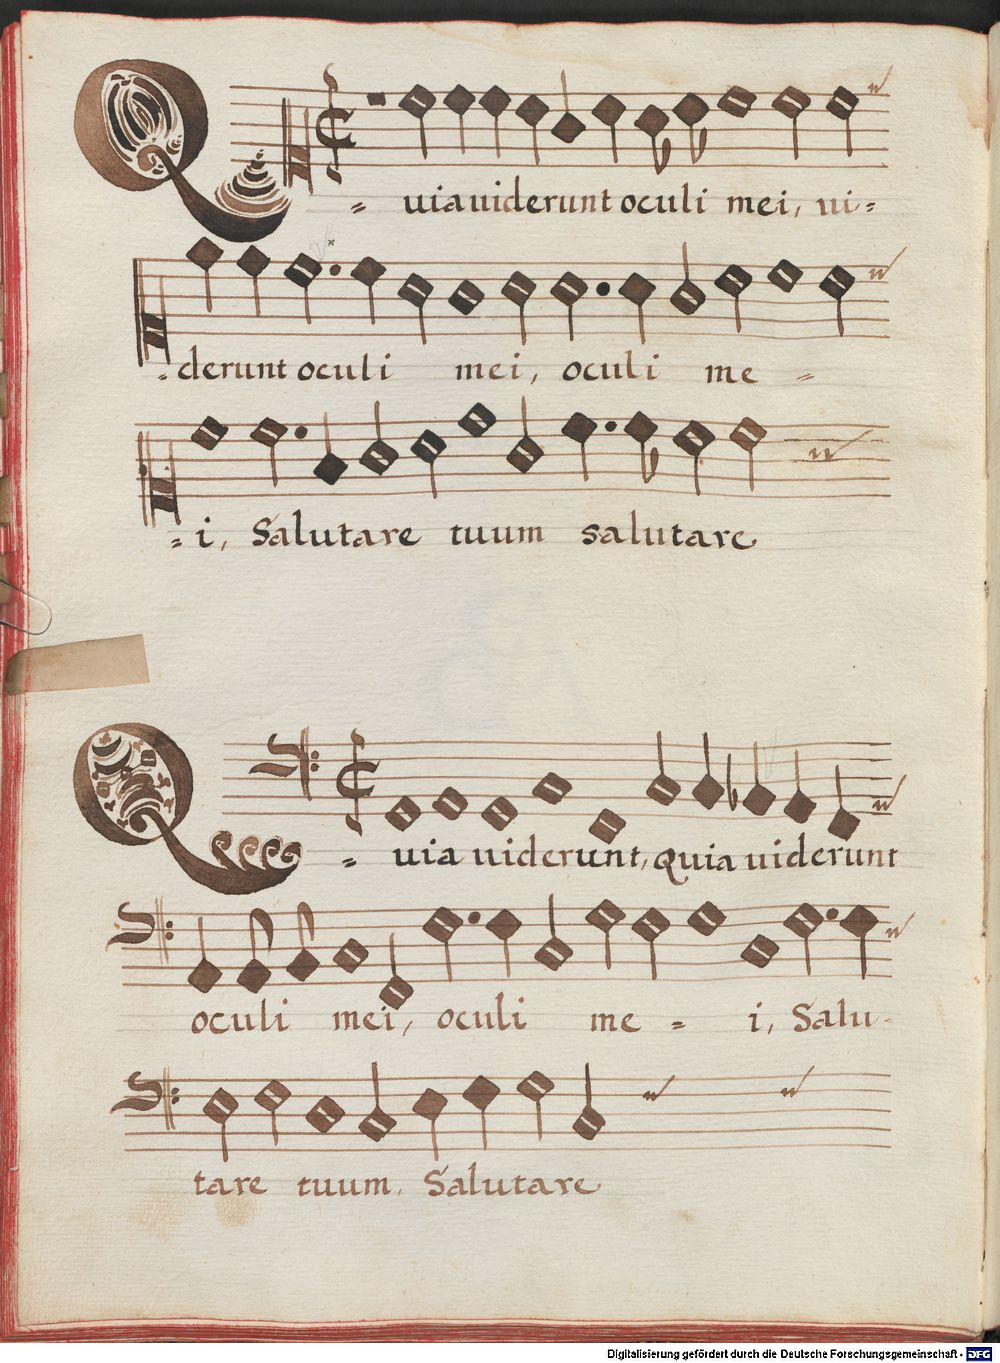 Quia uiderunt oculi mei, ui=
derunt oculi mei, oculi me =
= i, Salutare tuum salutare
Quia uiderunt, quia uiderunt
oculi mei, oculi me = i, Salu-
tare tuum, Salutare
Digitalisierung gefördert durch die Deutsche Forschungsgemeinschaft - DFG